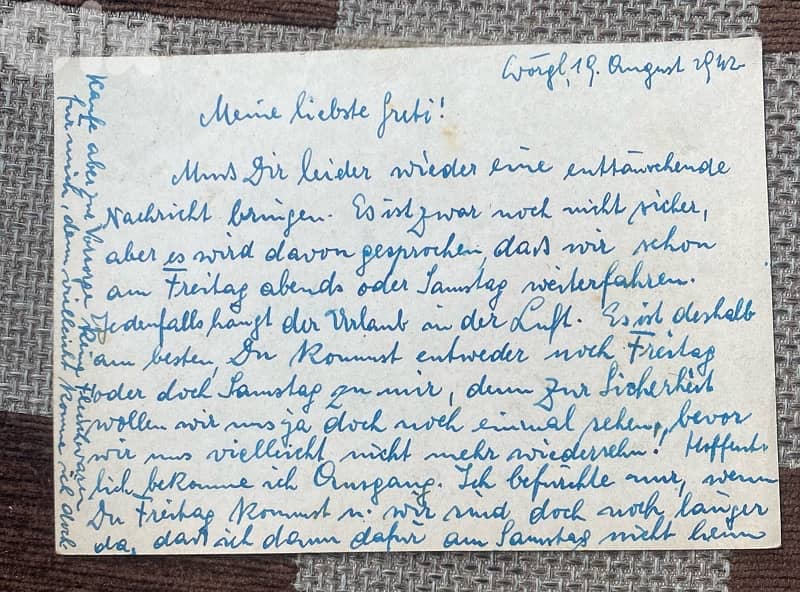 Wörgl, 19. August 1942
Meine liebste Greti!
Muss Dir leider wieder eine enttäuschende
Nachricht bringen. Es ist zwar noch nicht sicher,
aber es wird davon gesprochen, dass wir schon
am Freitag abends oder Samstag weiterfahren.
Jedenfalls hängt der Urlaub in der Luft. Es ist deshalb
am besten, Du kommst entweder noch Freitag
oder doch Samstag zu mir, denn zur Sicherheit
wollen wir uns ja doch noch einmal sehen, bevor
wir uns vielleicht nicht mehr wiedersehn! Hoffent-
lich bekomme ich Ausgang. Ich befürchte nur, wenn
Du Freitag kommst u. wir sind doch noch länger
da, dass ich dann dafür am Samstag nicht heim
Kaufe aber zur Vorsorge keine
für mich, denn vielleicht komme ich doch